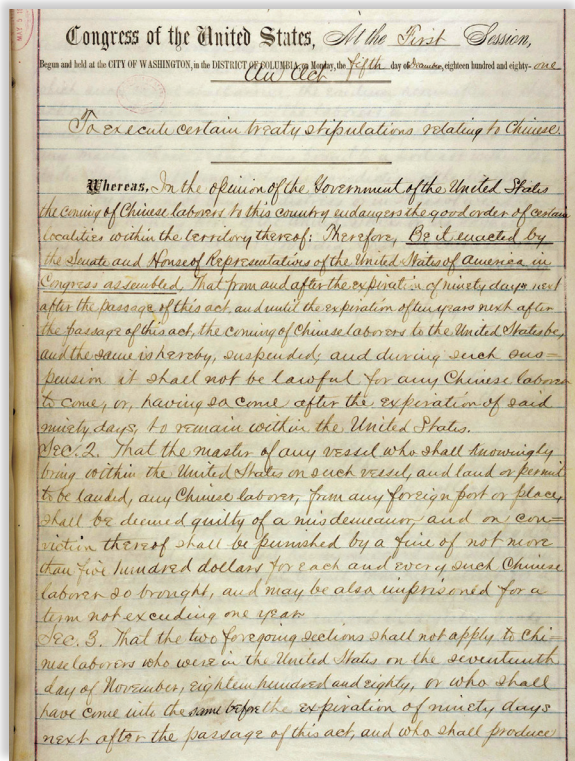 MAY 5 18
Congress of the United States, At the First Session,
Begun and held at the CITY OF WASHINGTON, in the DISTRICT OF COLUMBIA, on Monday, the fifth day of December, eighteen hundred and eighty-one
An Act
To execute certain treaty stipulations relating to Chinese.
Whereas, In the opinion of the Government of the United States
the coming of Chinese laborers to this country endangers the good order of certain
localities within the territory thereof: Therefore, Be it enacted by
the Senate and House of Representatives of the United States of America in
Congress assembled, That from and after the expiration of ninety days next
after the passage of this act, and until the expiration of ten years next after
the passage of this act, the coming of Chinese laborers to the United States be,
and the same is hereby, suspended; and during such sus=
pension it shall not be lawful for any Chinese laborer
to come, or, having so come after the expiration of said
ninety days, to remain within the United States.
Sec. 2. That the master of any vessel who shall knowingly
bring within the United States on such vessel, and land or permit
to be landed, any Chinese laborer, from any foreign port or place,
shall be deemed guilty of a misdemeanor, and on con=
viction thereof shall be punished by a fine of not more
than five hundred dollars for each and every such Chinese
laborer so brought, and may be also imprisoned for a
term not exceeding one year.
Sec. 3. That the two foregoing sections shall not apply to Chi=
nese laborers who were in the United States on the seventeenth
day of November, eighteen hundred and eighty, or who shall
have come into the same before the expiration of ninety days
next after the passage of this act, and who shall produce